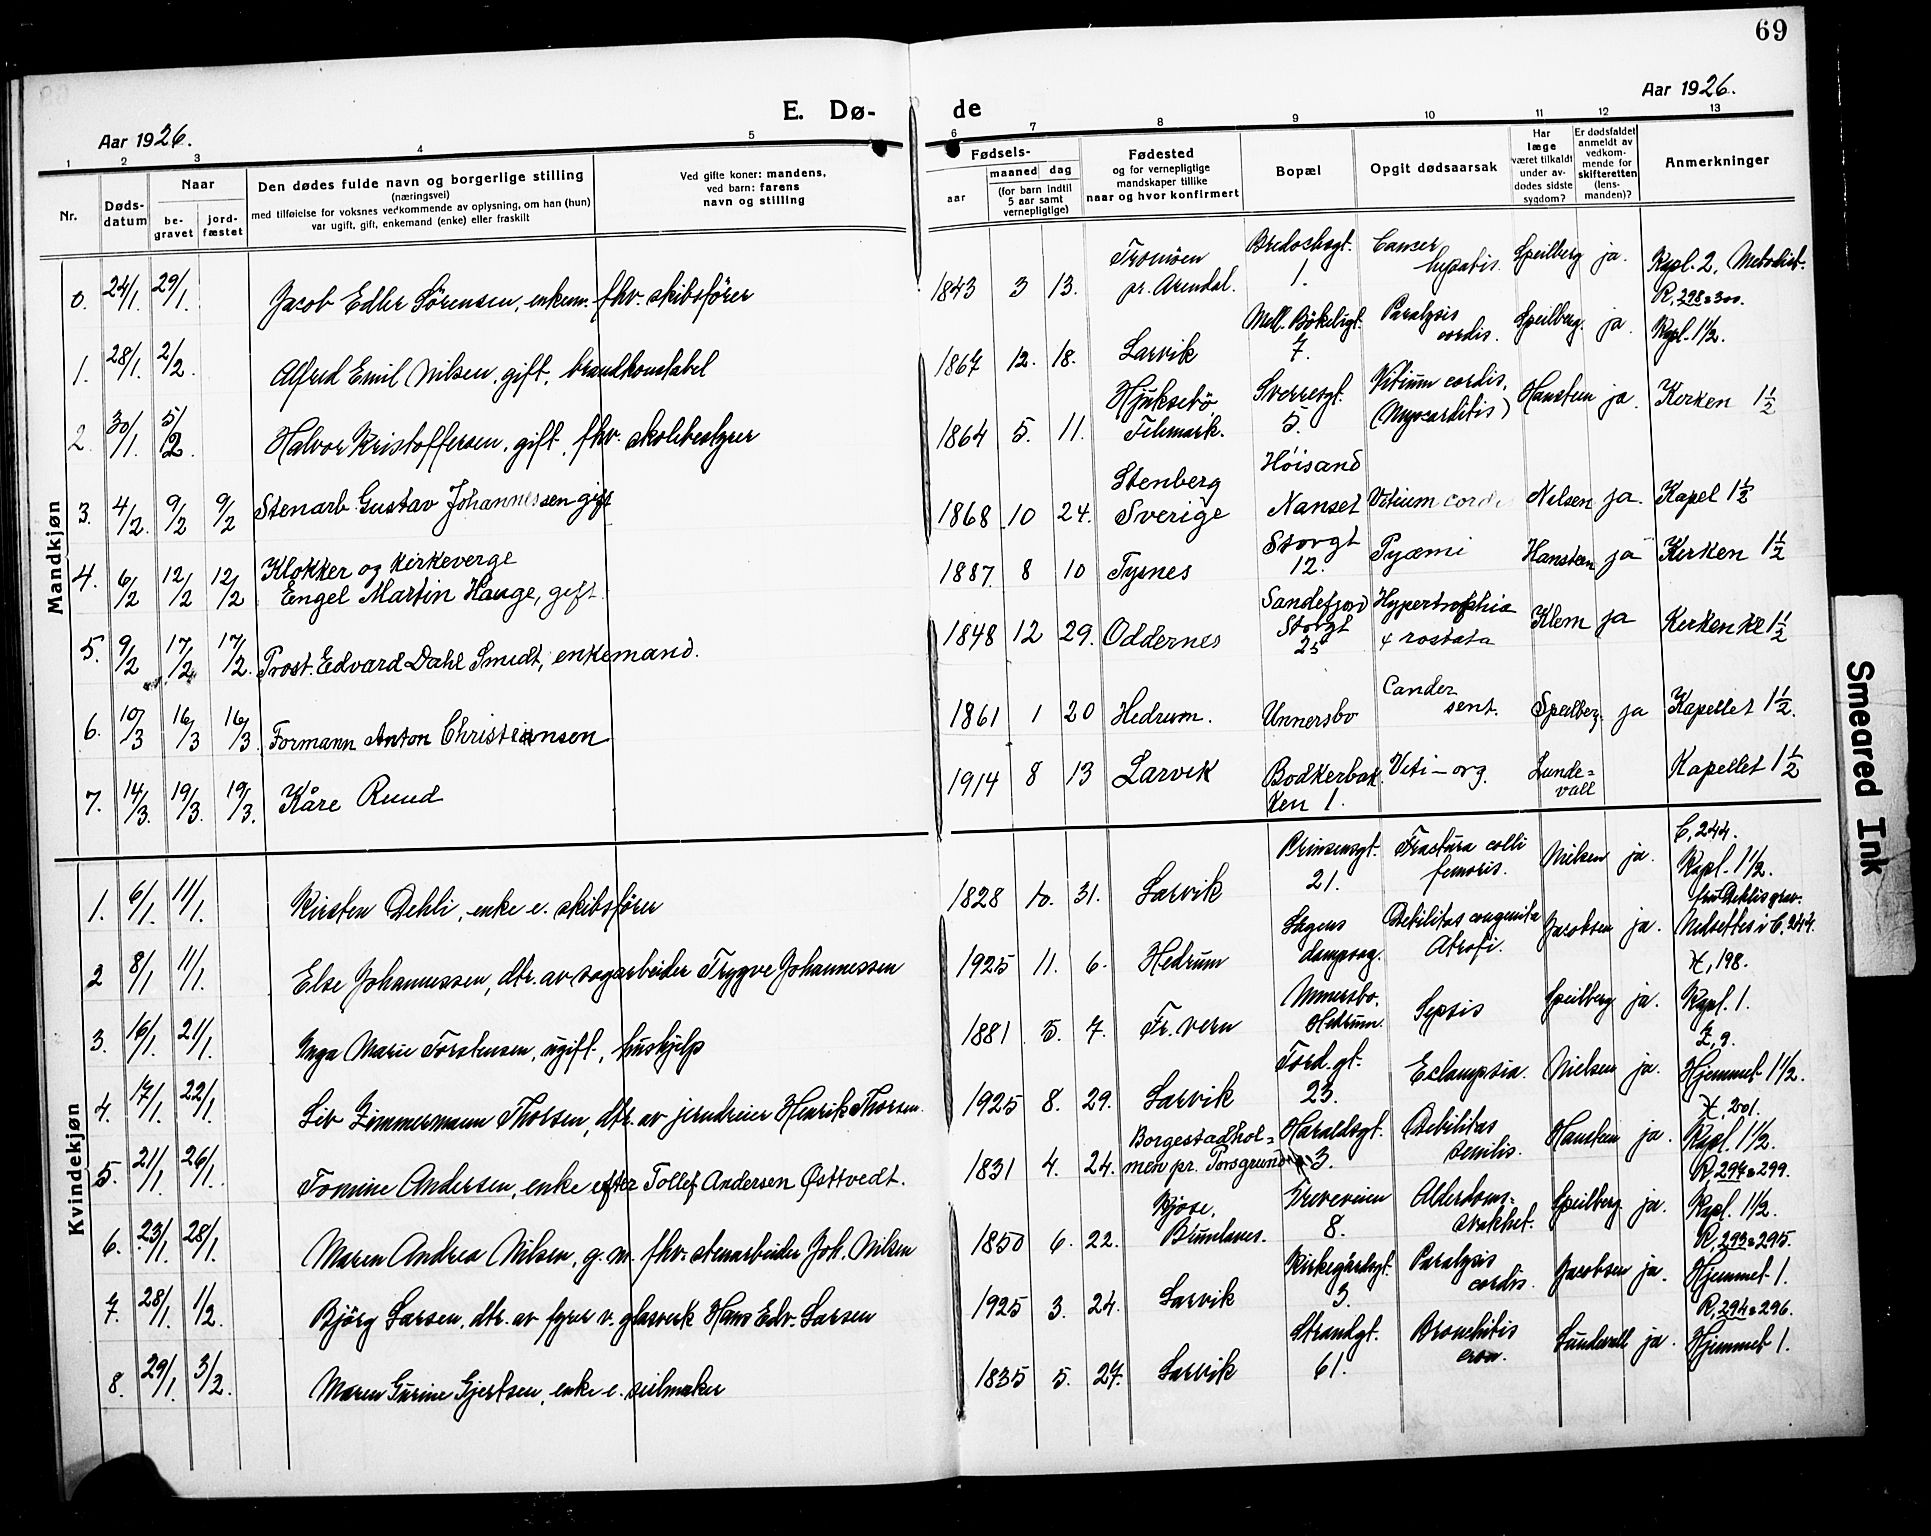 69
Aar 1926.
E. Dø-
de
Aar 1926.
1 2 3 4 5 6 7 8 9 10 11 12 13
Nr.
Døds-
datum
Naar
be-
gravet
jord-
fæstet
Den dødes fulde navn og borgerlige stilling
(næringsvei)
med tilføielse for voksnes vedkommende av oplysning, om han (hun)
var ugift, gift, enkemand (enke) eller fraskilt
Ved gifte koner: mandens,
ved barn: farens
navn og stilling
Fødsels-
aar
maaned dag
(for barn indtil
5 aar samt
vernepligtige)
Fødested
og for vernepligtige
mandskaper tillike
naar og hvor konfirmert
Bopæl
Opgit dødsaarsak
Har
læge
været tilkaldt
under av-
dødes sidste
sygdom?
Er dødsfaldet
anmeldt av
vedkom-
mende for
skifteretten
(lens-
manden)?
Anmerkninger
Mandkjøn
0. 24/1. 29/1. Jacob Edler Sörensen, enkem. fhv. skibsfører
1843 3 13. Tromöen
pr. Arendal.
1.
Cancer
hepatis.
Speilberg ja. Kapl. 2, Metodist.
R, 298=300.
1. 28/1. 2/2. Alfred Emil Nilsen, gift, brandkonstabel
1867 12. 18. Larvik
Mell. Bökeligt.
7.
Paralysis
cordis.
Speilberg. ja. Kapl. 1 1/2.
2. 30/1. 5/2 Halvor Kristoffersen, gift, fhv. skolebestyrer
1864 5. 11. Hjuksebö
Telemark.
Sverresgt.
5.
Vitium cordis,
(Myocarditis)
Hansteen ja. Kirken 1 1/2
3. 4/2. 9/2 9/2 Stenarb. Gustav Johannessen gift
1868 10 24. Stenberg
Sverige
Höisand
Nanset
Vitium cord
Nilsen ja. Kapel 1 1/2
4. 6/2 12/2 12/2 Klokker og kirkeverge
Engel Martin Hauge, gift.
1887 8 10 Tysnes
Storgt
12.
Pyæmi
Hansteen ja Kirken 1 1/2
5. 9/2 17/2 17/2. Prost. Edvard Dahl Smidt, enkemand.
1848 12 29. Oddernes
Sandefjord
Storgt
25
Hypertrophia
rostata
Klem ja Kirken kl 1 1/2
6. 10/3 16/3 16/3 Formann Anton Christiansen
1861 1 20 Hedrum.
Unnersbo
sent.
Speilberg. ja Kapellet 1 1/2.
7. 14/3. 19/3. 19/3. Kåre Ruud
1914 8 13 Larvik
Bödkerbak
ken 1.
Viti-org.
Lunde=
vall
Kapellet 1 1/2
Kvindekjøn
1. 6/1. 11/1. Kirsten Dehli, enke e. skibsfører
1828 10. 31. Larvik
Prinsensgt.
21.
Fractura colli
femoris.
Nielsen ja.
C, 244.
Kapl. 1 1/2.
fru Dehlis grav.
2 8/1. 11/1. Else Johannessen, dtr. av sagarbeider Trygve Johannessen
1925 11. 6. Hedrum
Lagens
dampsag.
Debilitas congenita
Atrofi.
Jacobsen ja. Nedsettes i C. 244.
3. 16/1. 21/1. Inga Marie Torstensen, ugift, hushjelp
1881 5. 7. Fr. vern
Unnersbo.
Hedrum.
Sepsis
Speilberg ja.
H, 198.
Kapl. 1.
4. 17/1. 22/1. Liv Zimmermann Thorsen, dtr. av jerndreier Henrik Thorsen.
1925 8. 29. Larvik
Tord. gt.
23.
Eclampsia.
Nielsen ja.
Z, 9.
Hjemmet 1 1/2.
5. 21/1. 26/1. Tomine Andersen, enke efter Tollef Andersen Østtvedt.
1831 4. 24. Borgestadhol=
men pr. Porsgrund
Haraldsgt.
3.
Debilitas
senilis.
Hansteen ja.
H, 201.
Kapl. 1 1/2.
6. 23/1. 28/1. Maren Andrea Nilsen, g. m. fhv. stenarbeider Joh. Nilsen
1850 6. 22. Kjose,
Brunlanes.
Greveveien
8.
Alderdoms-
svakhet.
Speilberg ja.
R, 297=299.
Kapl. 1 1/2.
7. 28/1. 1/2. Björg Larsen, dtr. av fyrer v. glasverk Hans Edv. Larsen
1925 3. 24. Larvik
Kirkegårdsgt.
3.
Paralysis
cordis.
Jacobsen ja.
R, 293=295.
Hjemmet 1.
8. 29/1. 3/2. Maren Gurine Gjertsen, enke e. seilmaker
1835 5. 27. Larvik
Strandgt.
61.
Bronchitis
cron.
Lundevall ja.
R, 294=296.
Hjemmet 1.
Smeared Ink